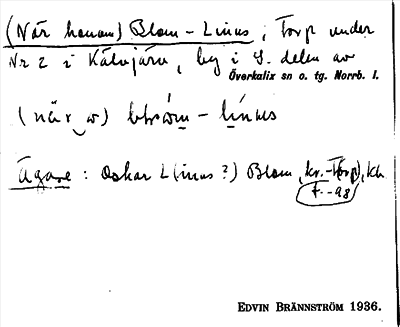 (När honom) Blom-Linus; Torp under
Nr 2 i Kälvjärv, by i S. delen av
Överkalix sn o. tg. Norrb. l.
(när w)
Ägare: Oskar L(inus?) Blom, kr.-Torp), kh
f. -98
EDVIN BRÄNNSTRÖM 1936.